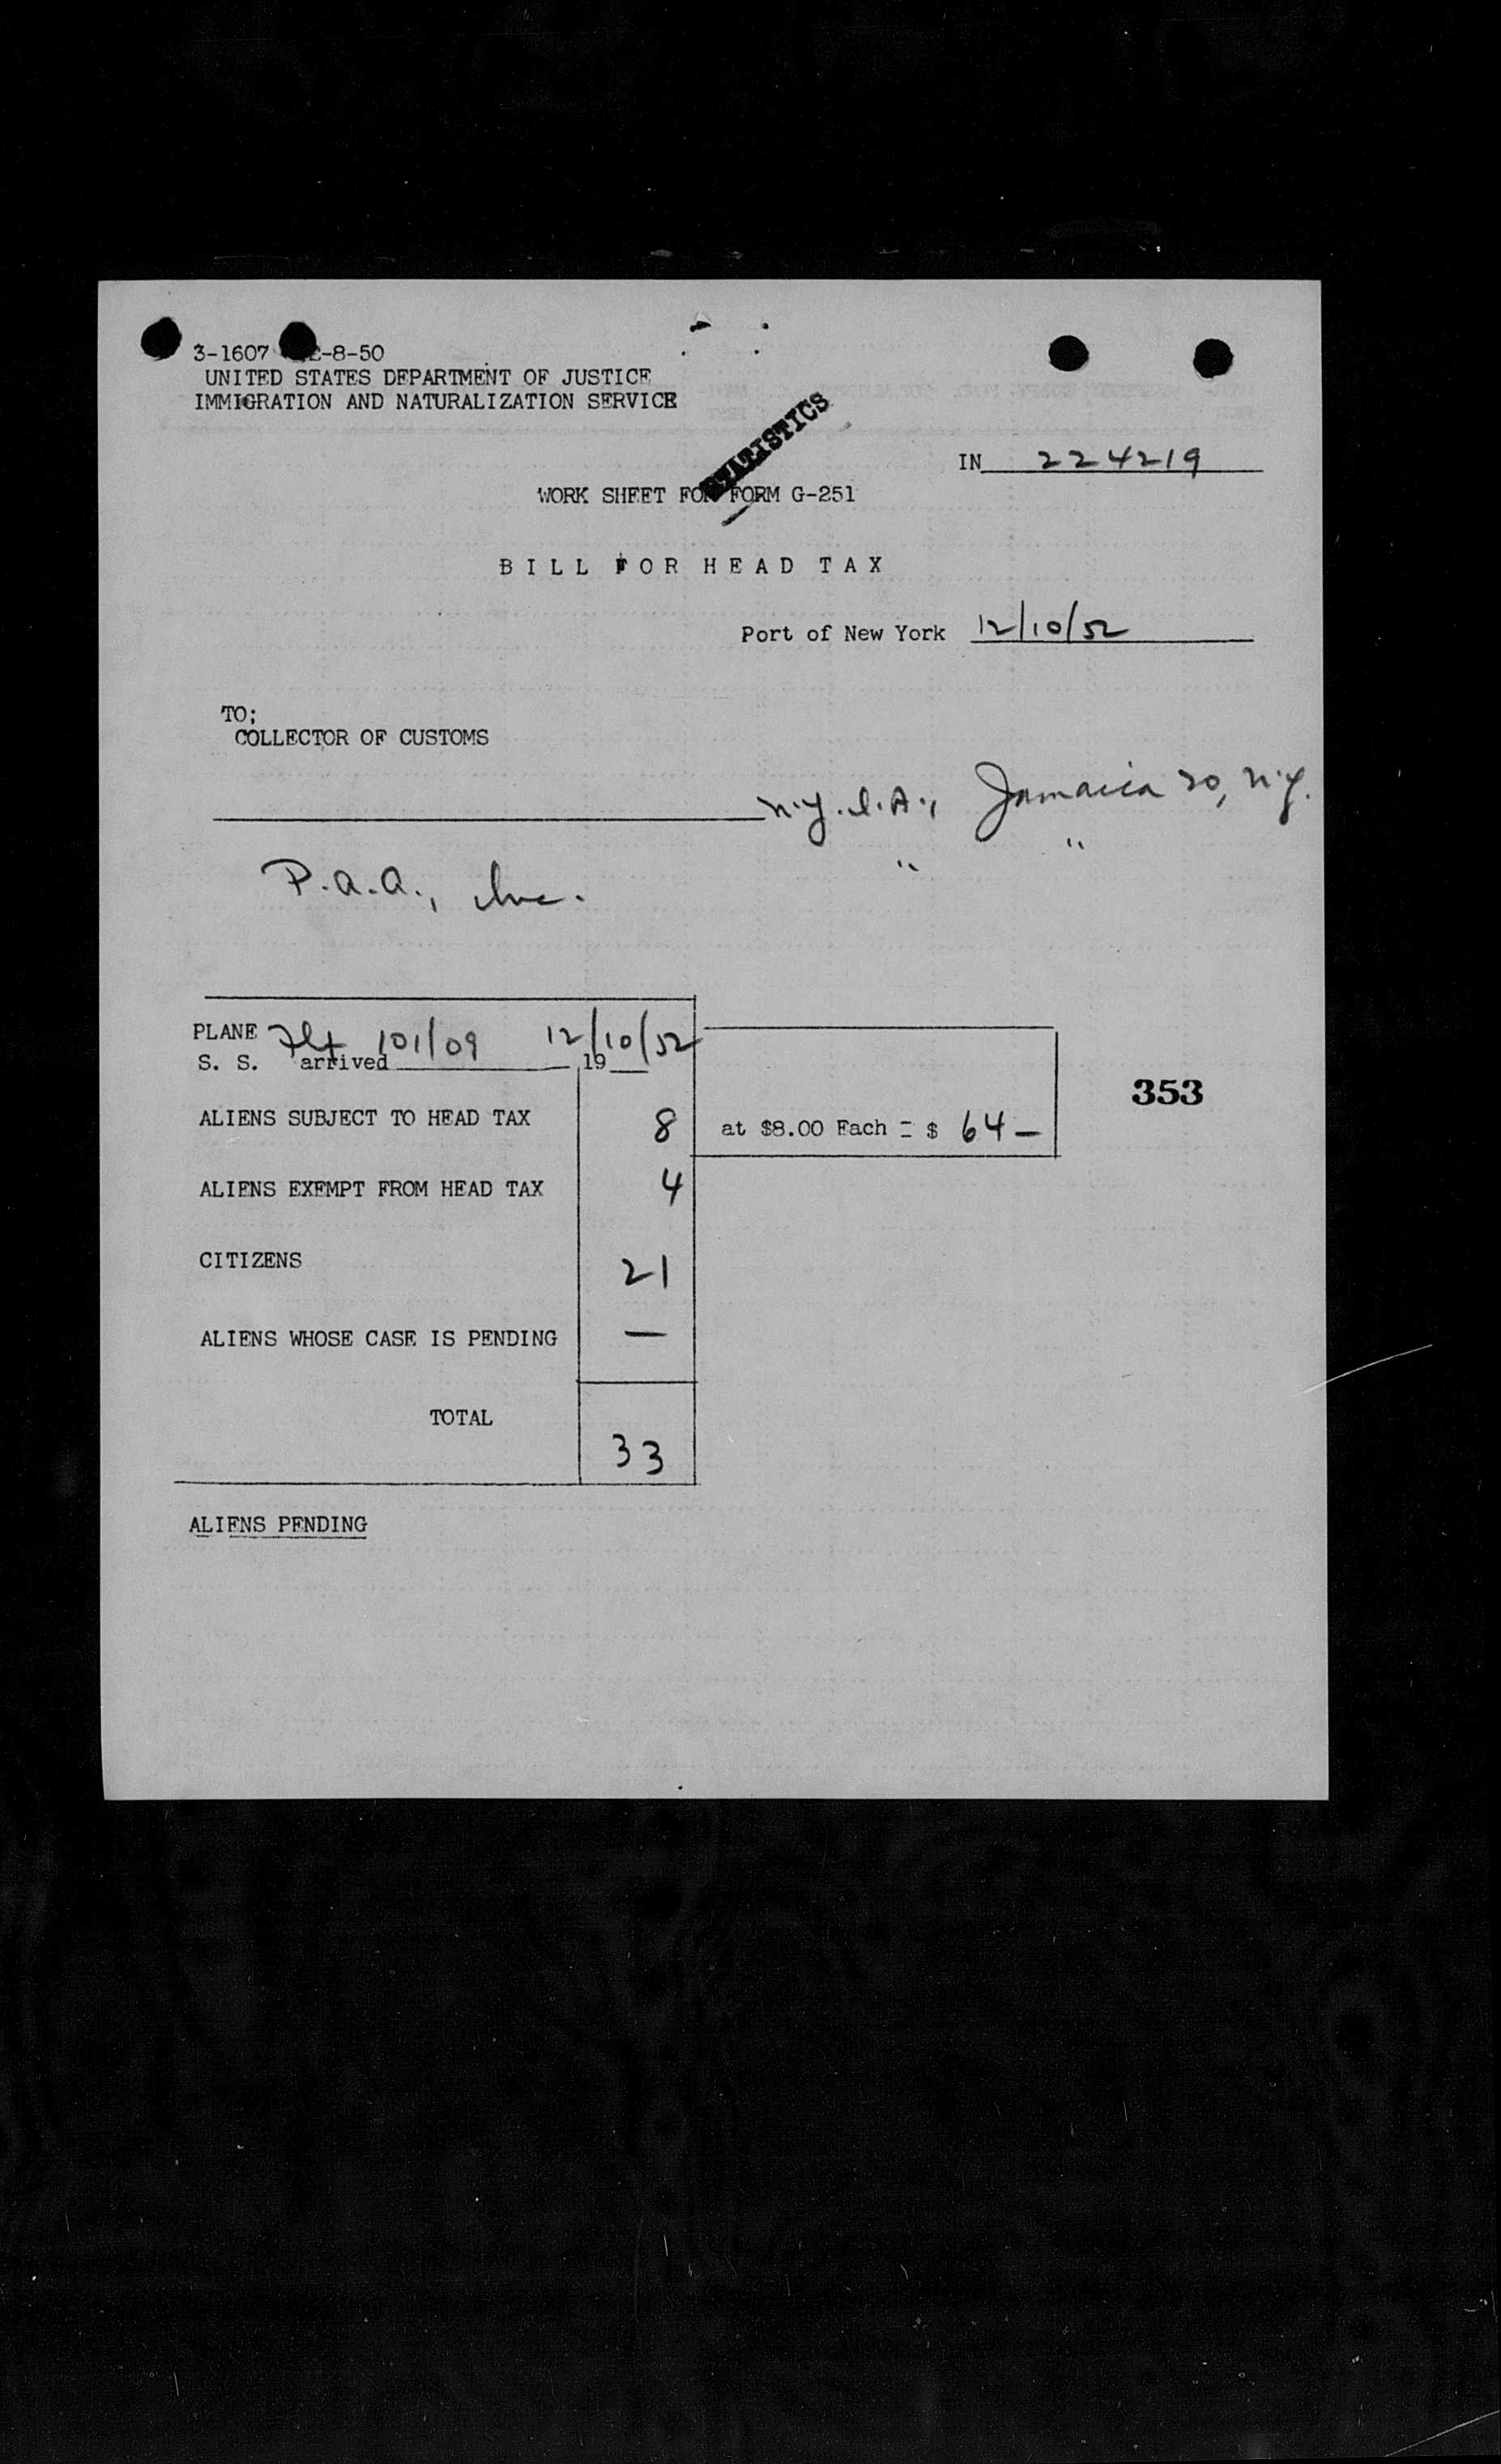 3-1607 -8-50
UNITED STATES DEPARTMENT OF JUSTICE
IMMIGRATION AND NATURALIZATION SERVICE
STATISTICS
IN 224219
WORK SHEET FOR FORM G-251
BILL FOR HEAD TAX
Port of New York 12/10/52
TO;
COLLECTOR OF CUSTOMS
N.Y.I.A., Jamaica 30, N.Y.
P.A.A., Inc. " "
PLANE Flt 101/09 12/10/52
S. S. arrived 19
ALIENS SUBJECT TO HEAD TAX 8 at $8.00 Each = $ 64 —
353
ALIENS EXEMPT FROM HEAD TAX 4
CITIZENS 21
ALIENS WHOSE CASE IS PENDING —
TOTAL 33
ALIENS PENDING